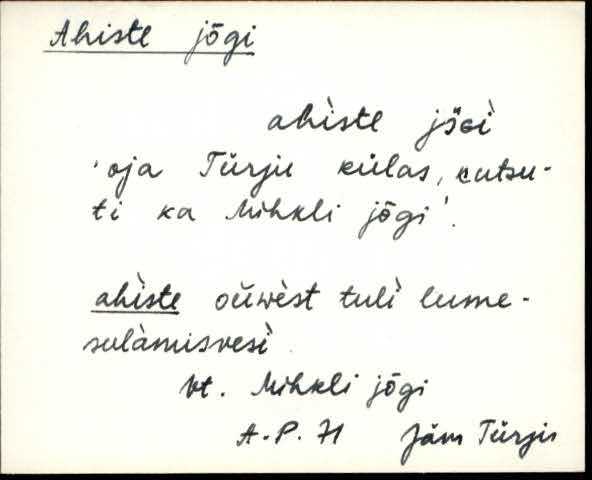 Ahiste jõgi
ahìste jȭGì
'oja Türju külas, kutsu-
ti ka Mihkli jõgi'.
ahìste oŭwèst tulì lume-
sulàmisvesì
Vt. Mihkli jõgi
A.P. 71 Jäm Türju